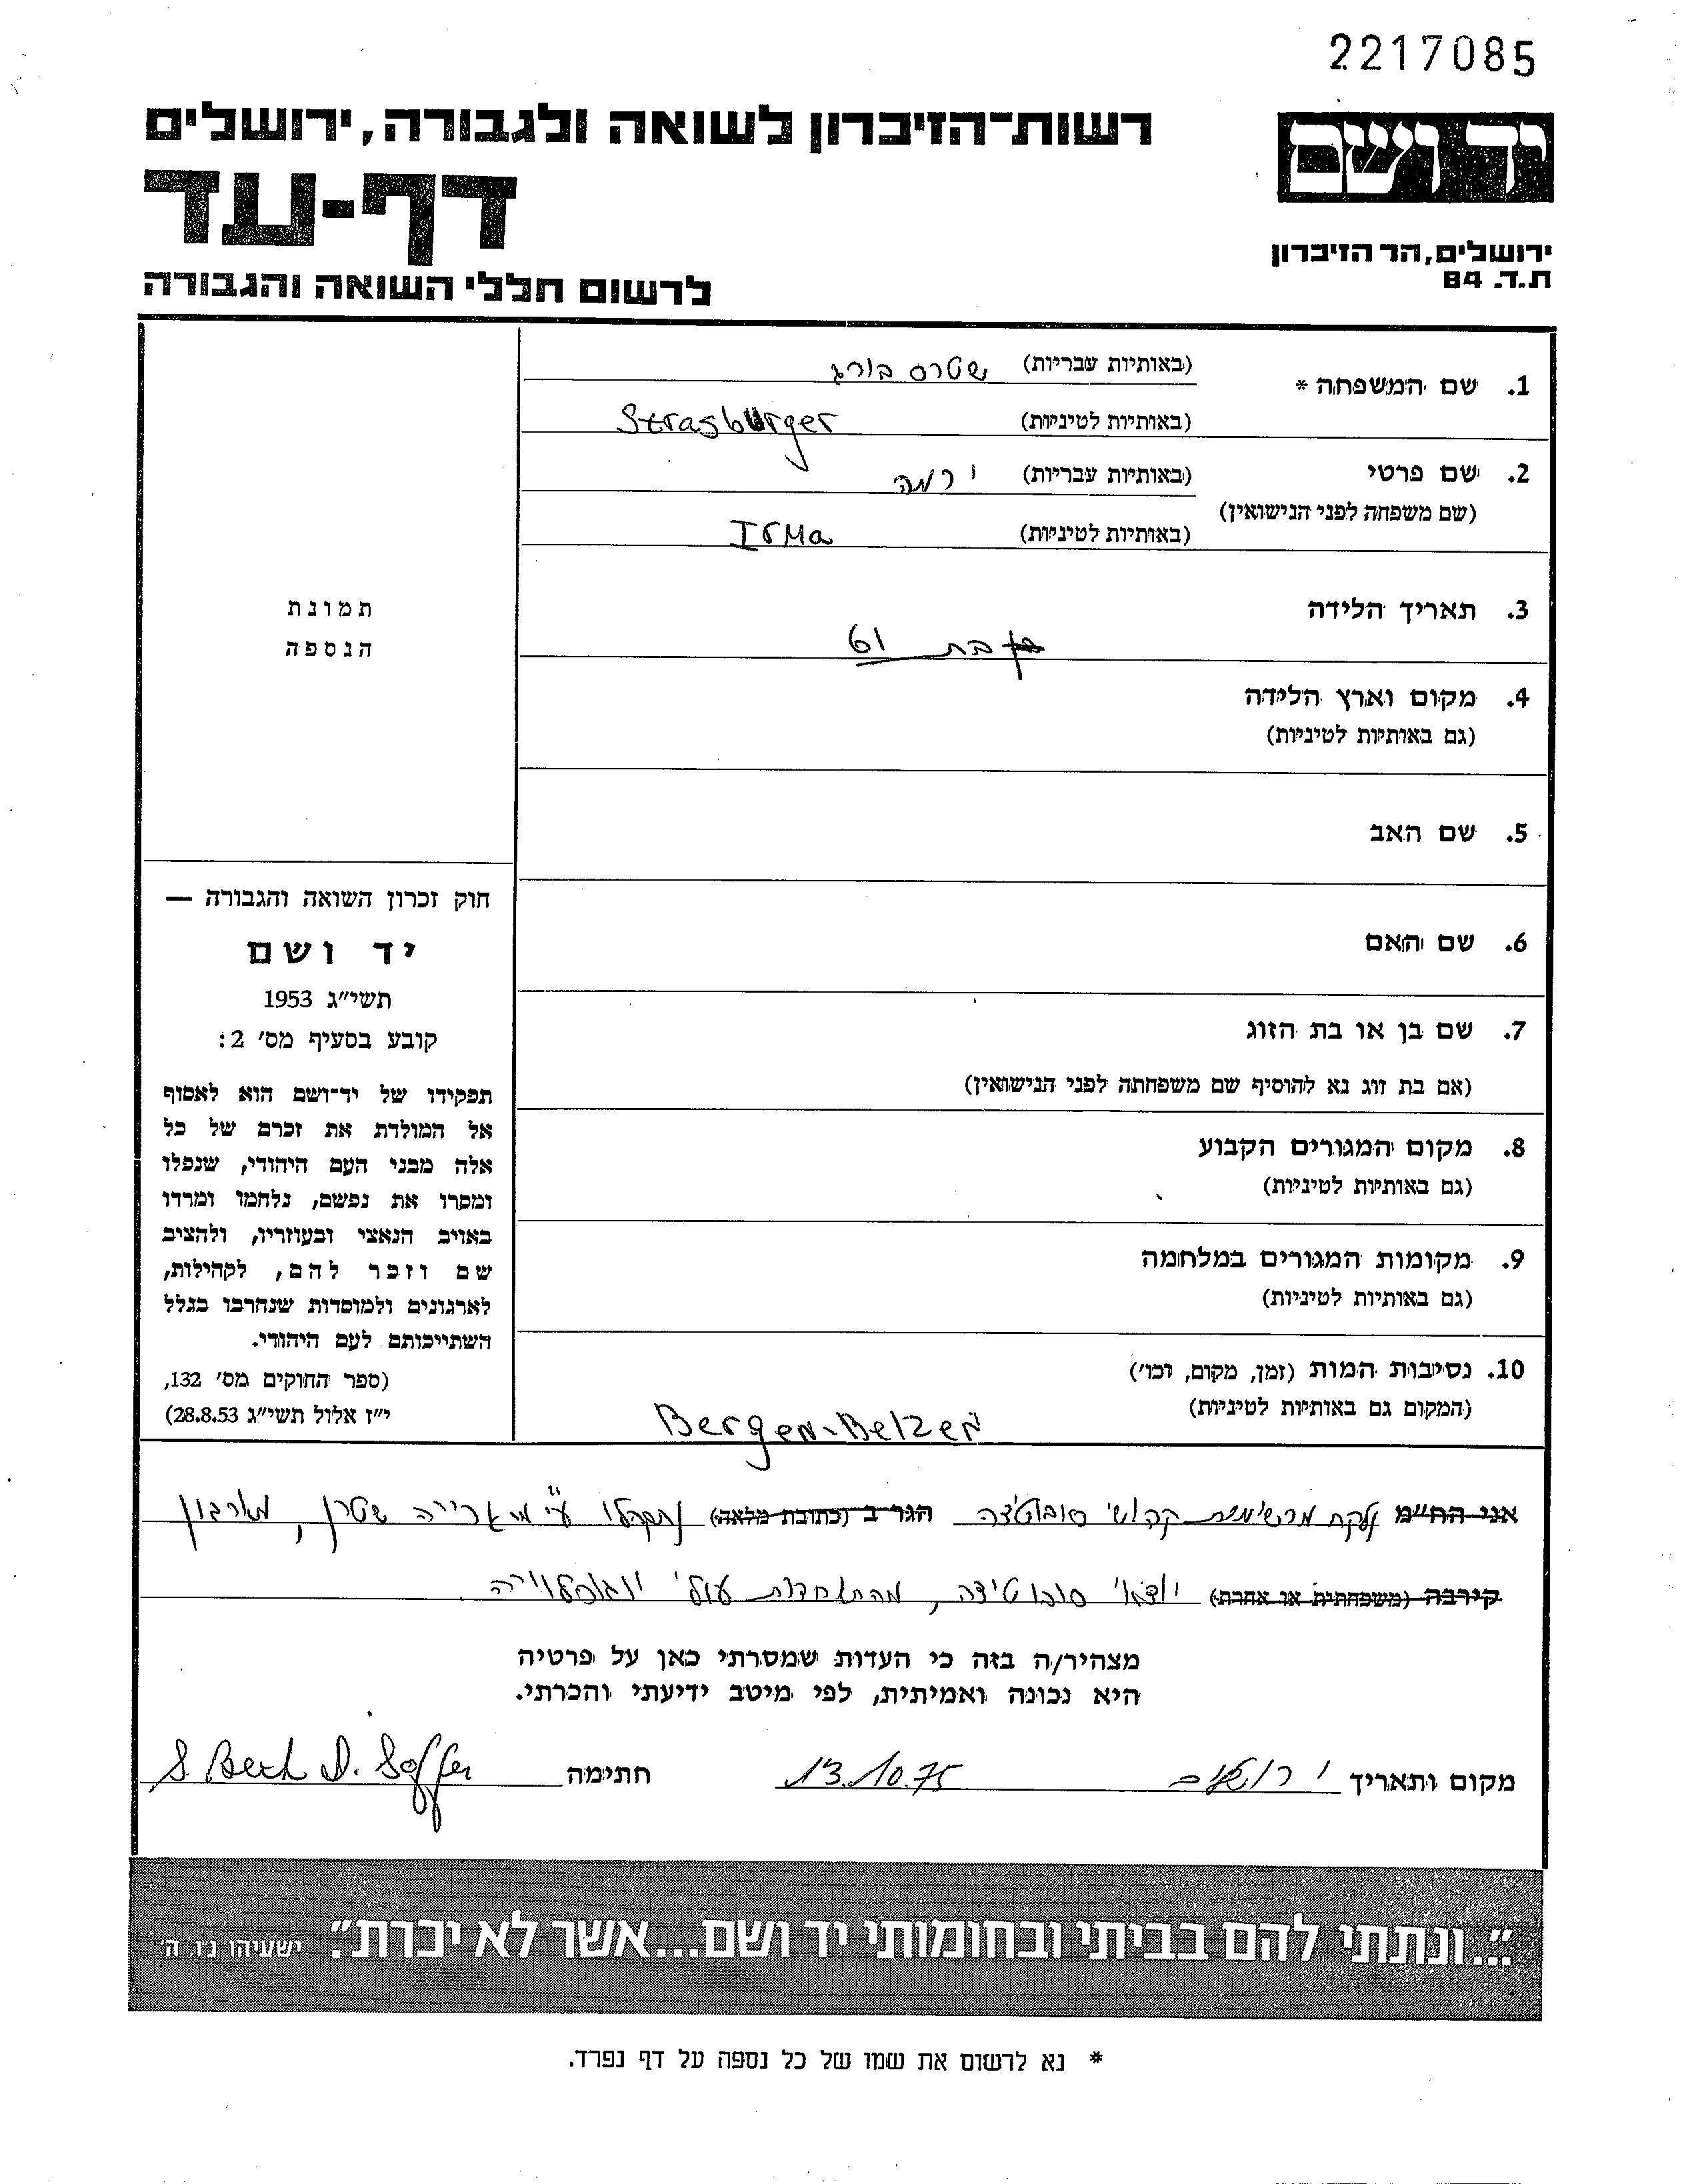 2217085
רשות־הזיכרון לשואה ולגבורה, ירושלים
יד ושם
דף-עד
ירושלים, הר הזיכרון
ת.ד. 84
לרשום חללי השואה והגבורה
1. שם המשפחה * (באותיות עבריות) שטרסבורג
(באותיות לטיניות) Strasburger
2. שם פרטי (באותיות עבריות) ירמה
(שם משפחה לפני הנישואין)
(באותיות לטיניות) Irma
3. תאריך הלידה
בת 61
4. מקום וארץ הלידה
(גם באותיות לטיניות)
5. שם האב
6. שם האם
7. שם בן או בת הזוג
(אם בת זוג נא להוסיף שם משפחתה לפני הנישואין)
8. מקום המגורים הקבוע
(גם באותיות לטיניות)
9. מקומות המגורים במלחמה
(גם באותיות לטיניות)
10. נסיבות המות (זמן, מקום, וכו')
(המקום גם באותיות לטיניות)
Bergen-Belzen
תמונת
הנספה
חוק זכרון השואה והגבורה —
יד ושם
תשי״ג 1953
קובע בסעיף מס׳ 2:
תפקידו של יד־ושם הוא לאסוף
אל המולדת את זכרם של כל
אלה מבני העם היהודי, שנפלו
ומסרו את נפשם, נלחמו ומרדו
באויב הנאצי ובעוזריו, ולהציב
שם וזכר להם, לקהילות,
לארגונים ולמוסדות שנחרבו בגלל
השתייכותם לעם היהודי.
(ספר החוקים מס׳ 132,
י״ז אלול תשי״ג 28.8.53)
אני הח״מ נלקח מרשימת קדושי סובוטיצה הגר ב (כתובת מלאה) נתקבלו ע״י מר אריה שטרן, מארגון
קירבה (משפחתית או אחרת) יוצאי סובוטיצה, מהתאחדות עולי יוגוסלוויה
מצהיר/ה בזה כי העדות שמסרתי כאן על פרטיה
היא נכונה ואמיתית, לפי מיטב ידיעתי והכרתי.
מקום ותאריך ירושלים 13.10.75 חתימה D. Soffer
״...ונתתי להם בביתי ובחומותי יד ושם...אשר לא יכרת״. ישעיהו נ״ו, ה׳
* נא לרשום את שמו של כל נספה על דף נפרד.